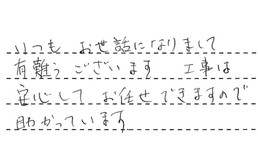 いつも お世話になりまして
有難う ございます 工事は
安心して お任せできますので
助かっています